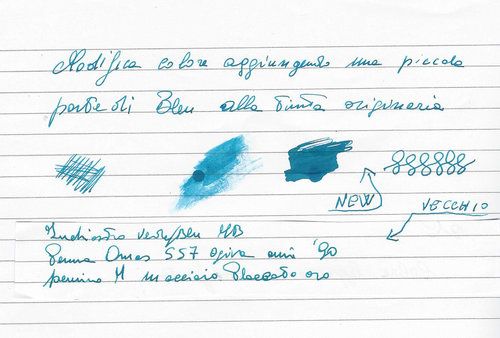 Modifica colore aggiungendo una piccola
parte di Bleu alla tinta originaria
NEW
VECCHIO
Inchiostro verde/bleu MB
Penna Omas 557 ogiva anni '90
pennino M in acciaio Placcato oro